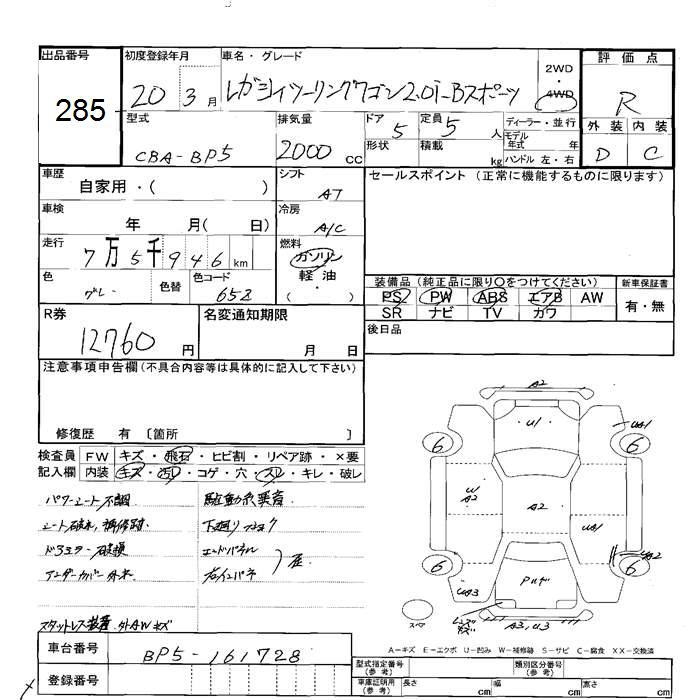 出品番号
285
初度登録年月
20 3月
車名・グレード
レガシィツーリングワゴン2.0i-Bスポーツ
2WD
・
4WD
評価点
R
外装 内装
D C
型式
CBA-BP5
排気量
2000 CC
ドア
5
形状
定員
5 人
積載
kg
ディーラー・並行
モデル年式 年
ハンドル 左・右
車歴
自家用・( )
シフト
AT
セールスポイント (正常に機能するものに限ります)
車検
年 月( 日)
冷房
A/C
走行
7万5千946 km
燃料
ガソリン
軽油
・
( )
色
グレー
色替
色コード
652
装備品 (純正品に限り○をつけてください)
PS PW ABS エアB AW
SR ナビ TV カワ
新車保証書
有・無
R券
12760 円
名変通知期限
月 日
後日品
注意事項申告欄 (不具合内容等は具体的に記入して下さい)
修復歴 有 〔箇所 〕
検査員
記入欄
FW キズ・飛石・ヒビ割・リペア跡・×要
内装 キズ・汚レ・コゲ・穴・スレ・キレ・破レ
パワーシート不調
駆動系異音
シート破れ、補修跡
下廻り
ドアミラー破損
エンドパネル
アンダーカバー外れ
右インパネ
スタットレス装着 外AWキズ
A2
U1
UA1
6
6
W
A2
A2
UA1
UA2
6
6
UA3
A3,U3
スペア
A-キズ E-エクボ U-凹み W-補修跡 S-サビ C-腐食 XX-交換済
車台番号
BP5-161728
登録番号
型式指定番号
(参考)
類別区分番号
(参考)
車庫証明用
(参考)
長さ cm
幅 cm
高さ cm